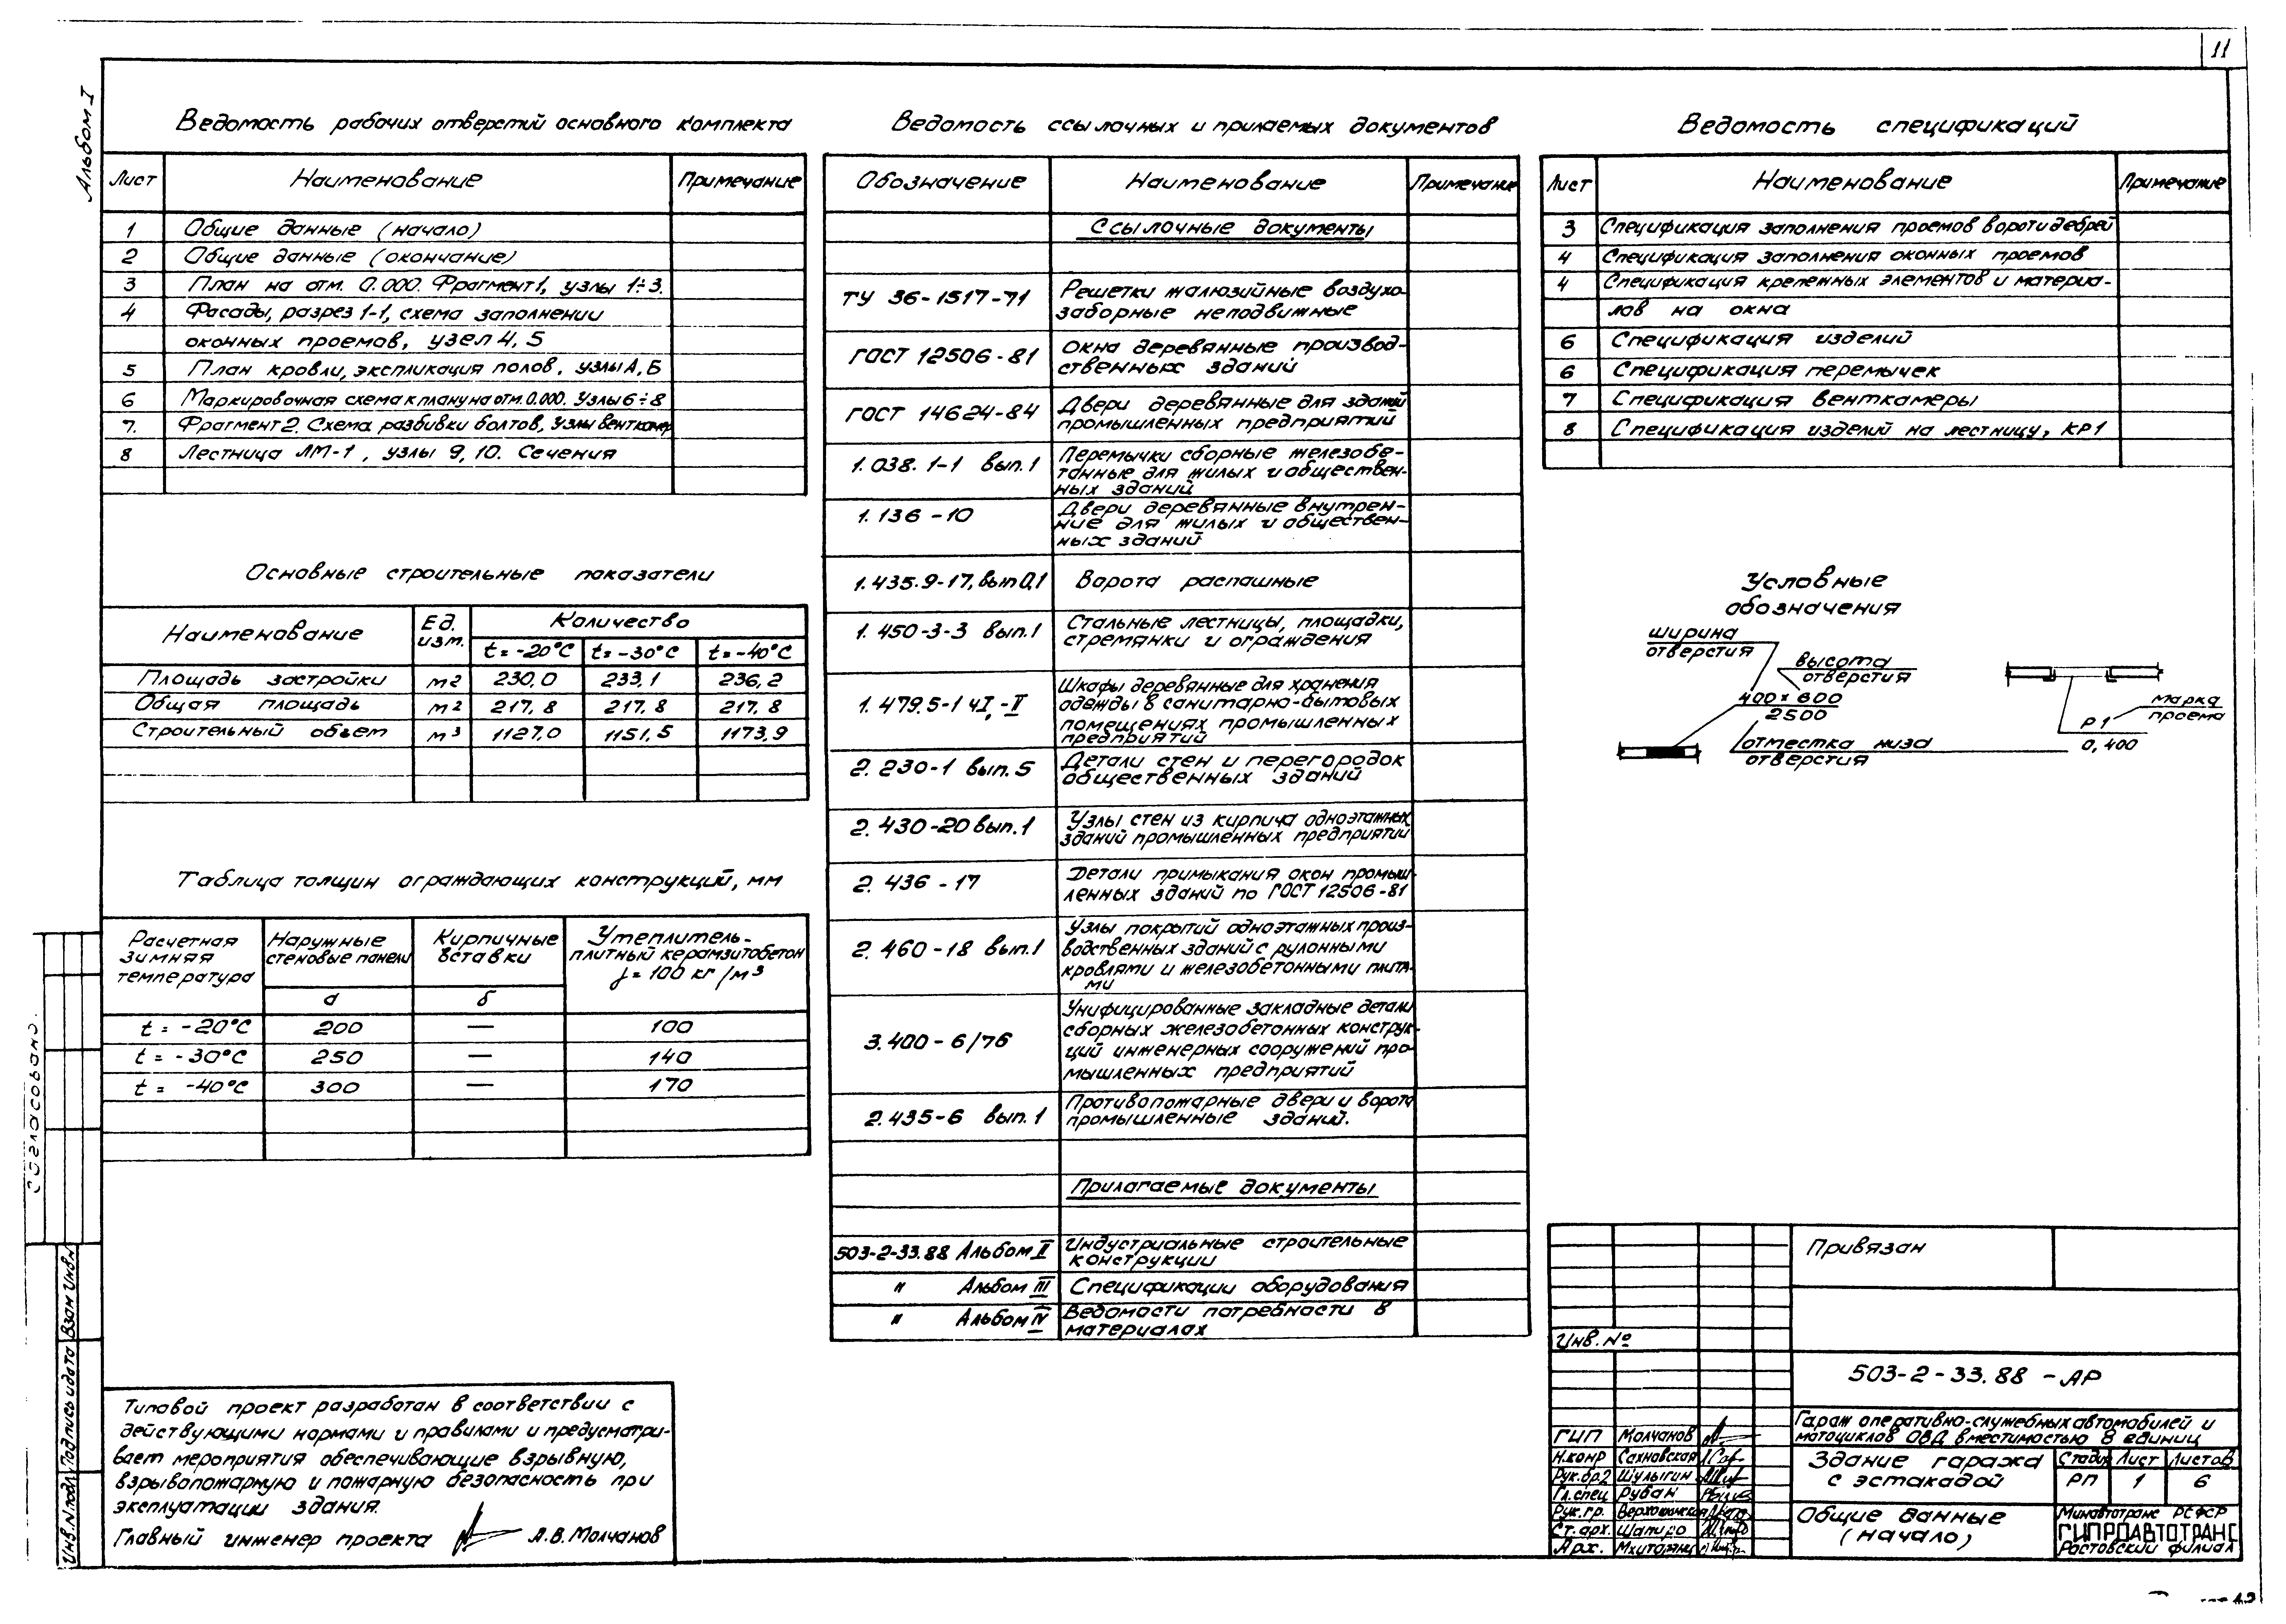 11
Альбом I
Ведомость рабочих отверстий основного комплекта
Лист Наименование Примечание
1 Общие данные (начало)
2 Общие данные (окончание)
3 План на отм. 0.000. Фрагмент 1, узлы 1÷3.
4 Фасады, разрез 1-1, схема заполнении
оконных проемов, узел 4, 5
5 План кровли, экспликация полов, узлы А, Б
6 Маркировочная схема к плану на отм. 0.000. Узлы 6÷8
7. Фрагмент 2. Схема разбивки болтов, узлы венткамер
8 Лестница ЛМ-1, узлы 9, 10. Сечения
Основные строительные показатели
Наименование Ед. изм. Количество
t = -20°С t = -30°С t = -40°С
Площадь застройки м2 230,0 233,1 236,2
Общая площадь м2 217,8 217,8 217,8
Строительный объем м3 1127,0 1151,5 1173,9
Таблица толщин ограждающих конструкций, мм
Расчетная зимняя температура
Наружные стеновые панели
Кирпичные вставки
Утеплитель- плитный керамзитобетон γ = 100 кг/м3
а б
t = -20°С 200 — 100
t = -30°С 250 — 140
t = -40°С 300 — 170
Типовой проект разработан в соответствии с
действующими нормами и правилами и предусматри-
вает мероприятия обеспечивающие взрывную,
взрывопожарную и пожарную безопасность при
эксплуатации здания.
Главный инженер проекта А.В. Молчанов
Ведомость ссылочных и прилаемых документов
Обозначение Наименование Примечание
Ссылочные документы
ТУ 36-1517-71 Решетки жалюзийные воздухо-
заборные неподвижные
ГОСТ 12506-81 Окна деревянные производ-
ственных зданий
ГОСТ 14624-84 Двери деревянные для зданий
промышленных предприятий
1.038.1-1 вып.1 Перемычки сборные железобе-
тонные для жилых и обществен-
ных зданий
1.136-10 Двери деревянные внутрен-
ние для жилых и обществен-
ных зданий
1.435.9-17, вып 0,1 Ворота распашные
1.450-3-3 вып.1 Стальные лестницы, площадки,
стремянки и ограждения
1.479.5-1 чI,-II Шкафы деревянные для хранения
одежды в санитарно-бытовых
помещениях промышленных
предприятий
2.230-1 вып.5 Детали стен и перегородок
общественных зданий
2.430-20 вып.1 Узлы стен из кирпича одноэтажных
зданий промышленных предприятий
2.436-17 Детали примыкания окон промыш-
ленных зданий по ГОСТ 12506-81
2.460-18 вып.1 Узлы покрытий одноэтажных произ-
водственных зданий с рулонными
кровлями и железобетонными плита-
ми
3.400-6/76 Унифицированные закладные детали
сборных железобетонных конструк-
ций инженерных сооружений про-
мышленных предприятий
2.435-6 вып.1 Противопожарные двери и ворота
промышленные зданий.
Прилагаемые документы
503-2-33.88 Альбом II Индустриальные строительные
конструкции
" Альбом III Спецификации оборудования
" Альбом IV Ведомости потребности в
материалах
Ведомость спецификаций
Лист Наименование Примечание
3 Спецификация заполнения проемов ворот и дверей
4 Спецификация заполнения оконных проемов
4 Спецификация крепежных элементов и материа-
лов на окна
6 Спецификация изделий
6 Спецификация перемычек
7 Спецификация венткамеры
8 Спецификация изделий на лестницу, КР1
Условные
обозначения
ширина
отверстия
высота
отверстия
400 × 600
2500
отместка низа
отверстия
марка
проема
Р1
0,400
Привязан
Инв. №
503-2-33.88 -АР
Гараж оперативно-служебных автомобилей и
мотоциклов ОВД вместимостью 8 единиц
ГИП Молчанов
Н.контр Сахновская
Рук.бр2 Шулыгин
Гл.спец Рубан
Рук.гр.
Ст.арх. Шапиро
Арх. Мхитарянц
Здание гаража
с эстакадой
Стадия Лист Листов
РП 1 6
Общие данные
(начало)
Минавтотранс РСФСР
ГИПРОАВТОТРАНС
Ростовский филиал
Согласовано.
Взам Инв.№
Подпись и дата
Инв.№ подл.